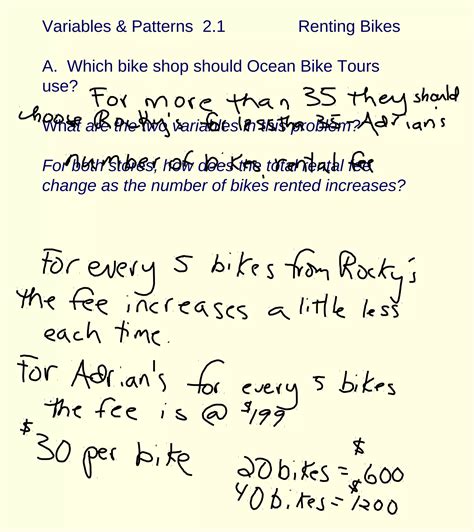 Variables & Patterns 2.1 Renting Bikes
A. Which bike shop should Ocean Bike Tours
use?
For more than 35 they should
choose Rocky's - for less than 35 - Adrian's
What are the two variables in this problem?
number of bikes, rental fee
For both stores, how does the total rental fee
change as the number of bikes rented increases?
For every 5 bikes from Rocky's
the fee increases a little less
each time.
For Adrian's for every 5 bikes
the fee is @ $199
$30 per bike
20 bikes = $600
40 bikes = $1200